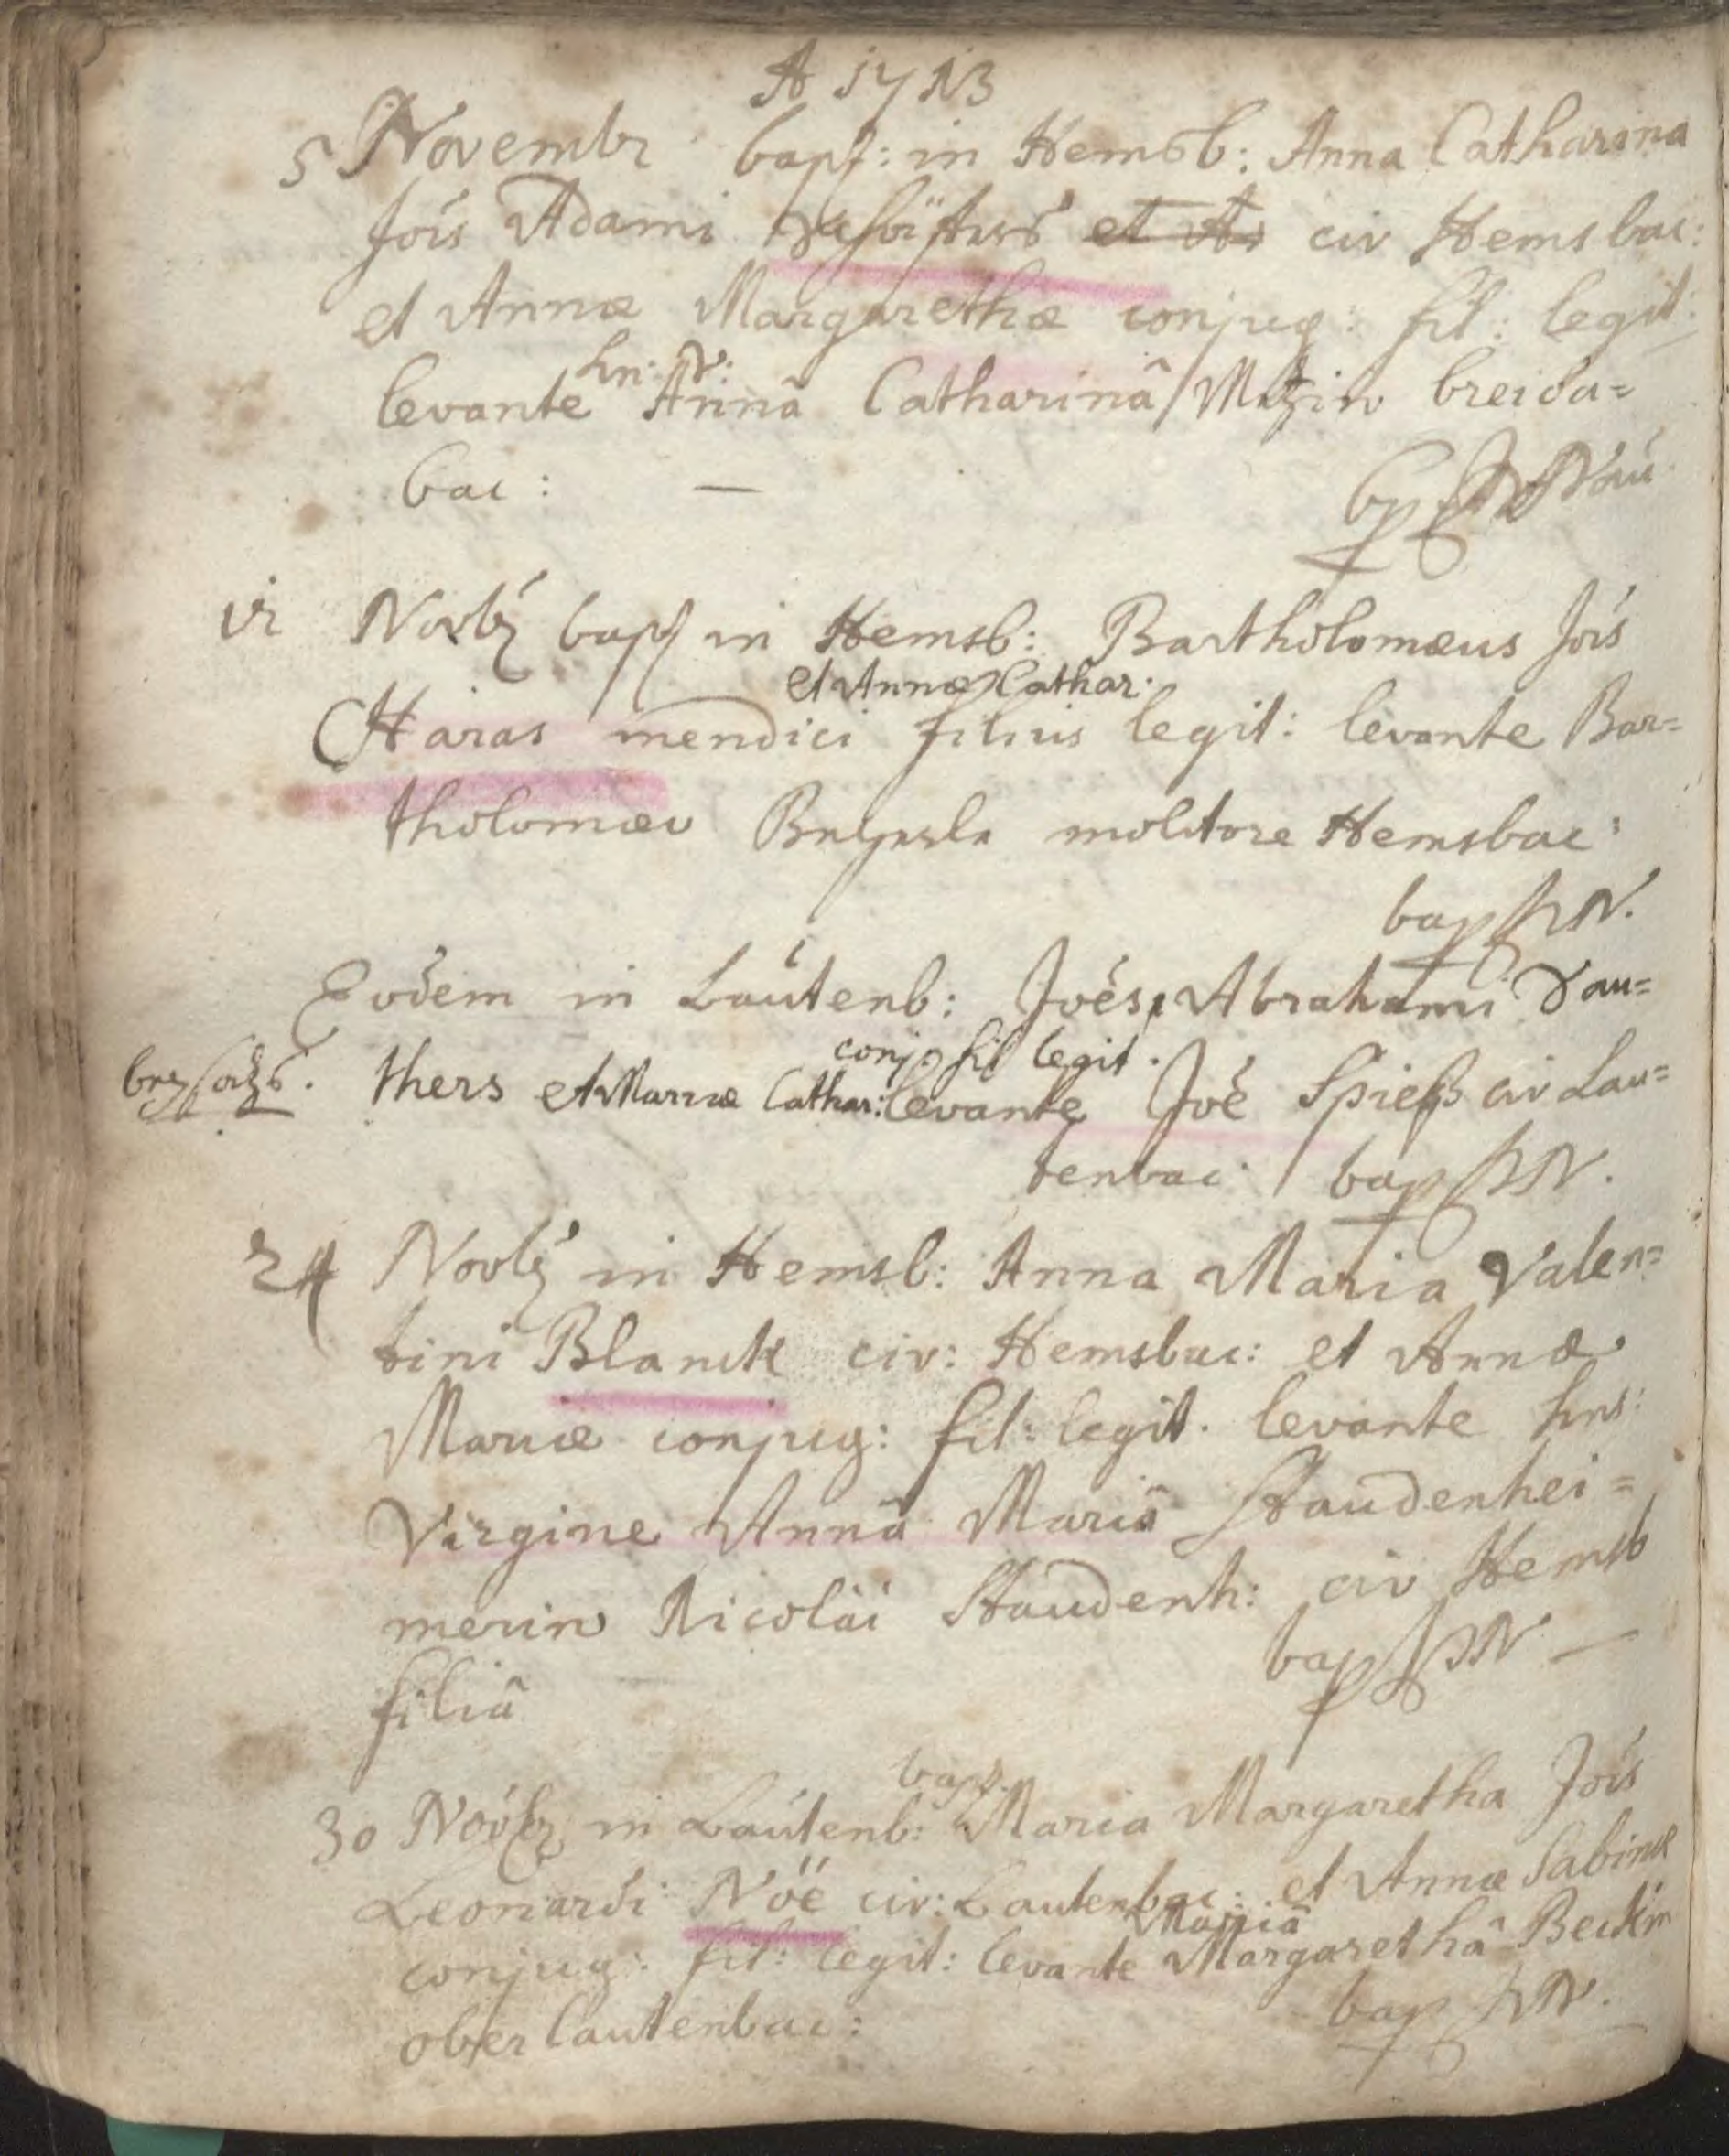 A 1713
5 Novembr bapt: in Hemsb: Anna Catharina
Jois Adami et A civ Hemsbac:
et Annæ Margarethæ conjug: fil: legit:
hn: N:
levante Annâ Catharinâ Metzin breida=
bac: —
Nau
12 Novbr bapt in Hemsb: Bartholomæus Jois
et Annæ Cathar.
Haras mendici filius legit: levante Bar=
tholomæo molitore Hemsbac:
bap h N.
Eodem in Lautenb: Joës, Abrahami Vau=
conj: fil legit.
thers et Mariæ Cathar: levante Joë Spiess civ Lau=
tenbac bap h N.
24 Novbr in Hemsb: Anna Maria Valen=
tini Blanck civ: Hemsbac: et Annæ
Mariæ conjug: fil: legit. levante hns:
Virgine Annâ Mariâ Staudenhei=
merin Nicolai Staudenh: civ Hemsb
bap h N —
filiâ
bapt.
30 Novbr in Lautenb: Maria Margaretha Jois
Leonardi Nöe civ: Lautenbac: et Annæ Sabinæ
Mariâ
conjug: fil: legit: levante Margarethâ Beckin
ober lautenbac: bap h N.